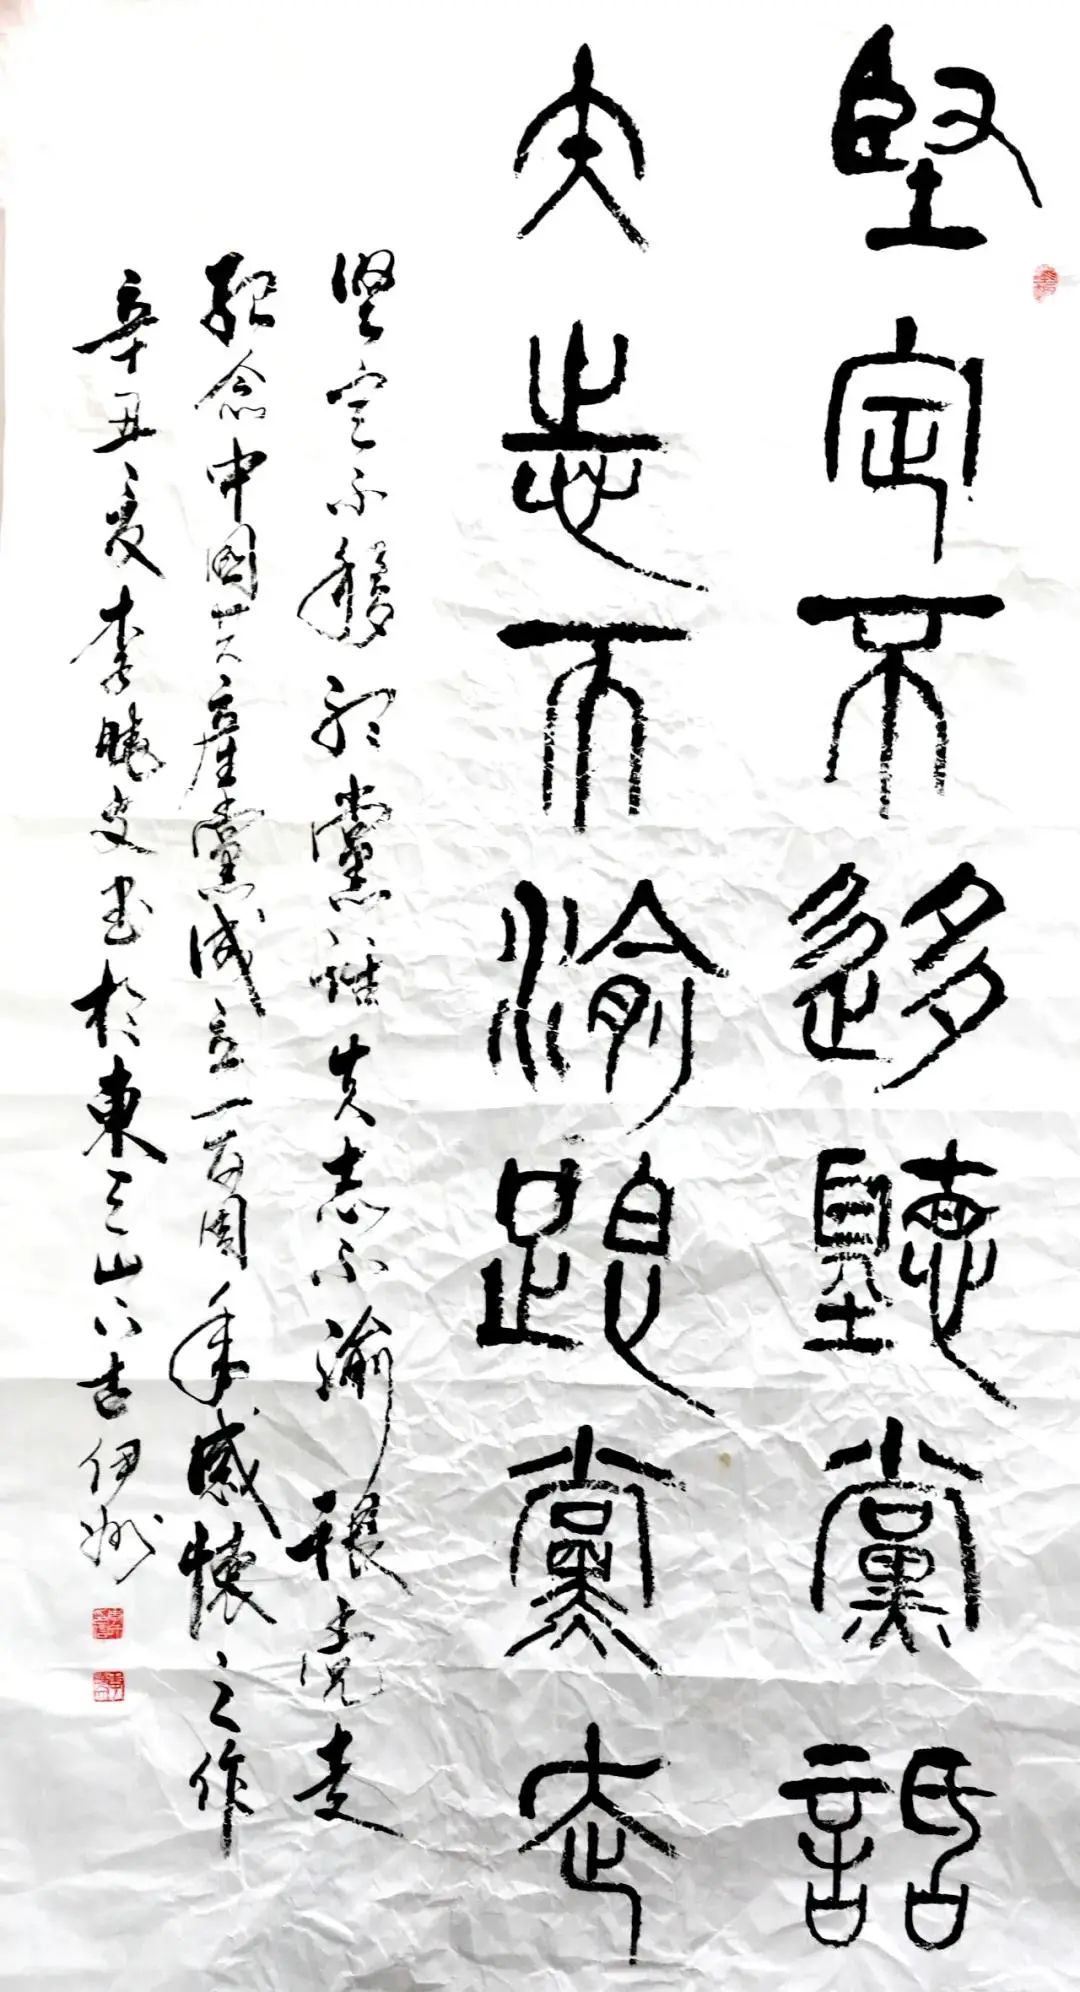 堅定不移聽黨話
矢志不渝跟黨走
堅定不移聽黨話矢志不渝跟党走
紀念中國共產黨成立一百周年感懷之作
辛丑夏李曉書於東天山下古伊州